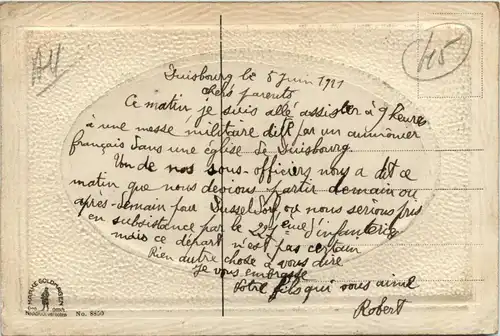 Duisbourg le 5 Juin 1921
chers parents
Ce matin je suis allé assister à 9 heures
à une messe militaire dite par un aumônier
français dans une église de Duisbourg.
Un de nos sous-officiers nous a dit ce
matin que nous devions partir demain ou
après-demain pour Dusseldorf où nous serions pris
en subsistance par le d'infanterie
mais ce départ n'est pas certain
Rien autre chose à vous dire
je vous embrasse
Votre fils qui vous aime
Robert
45
No. 8800